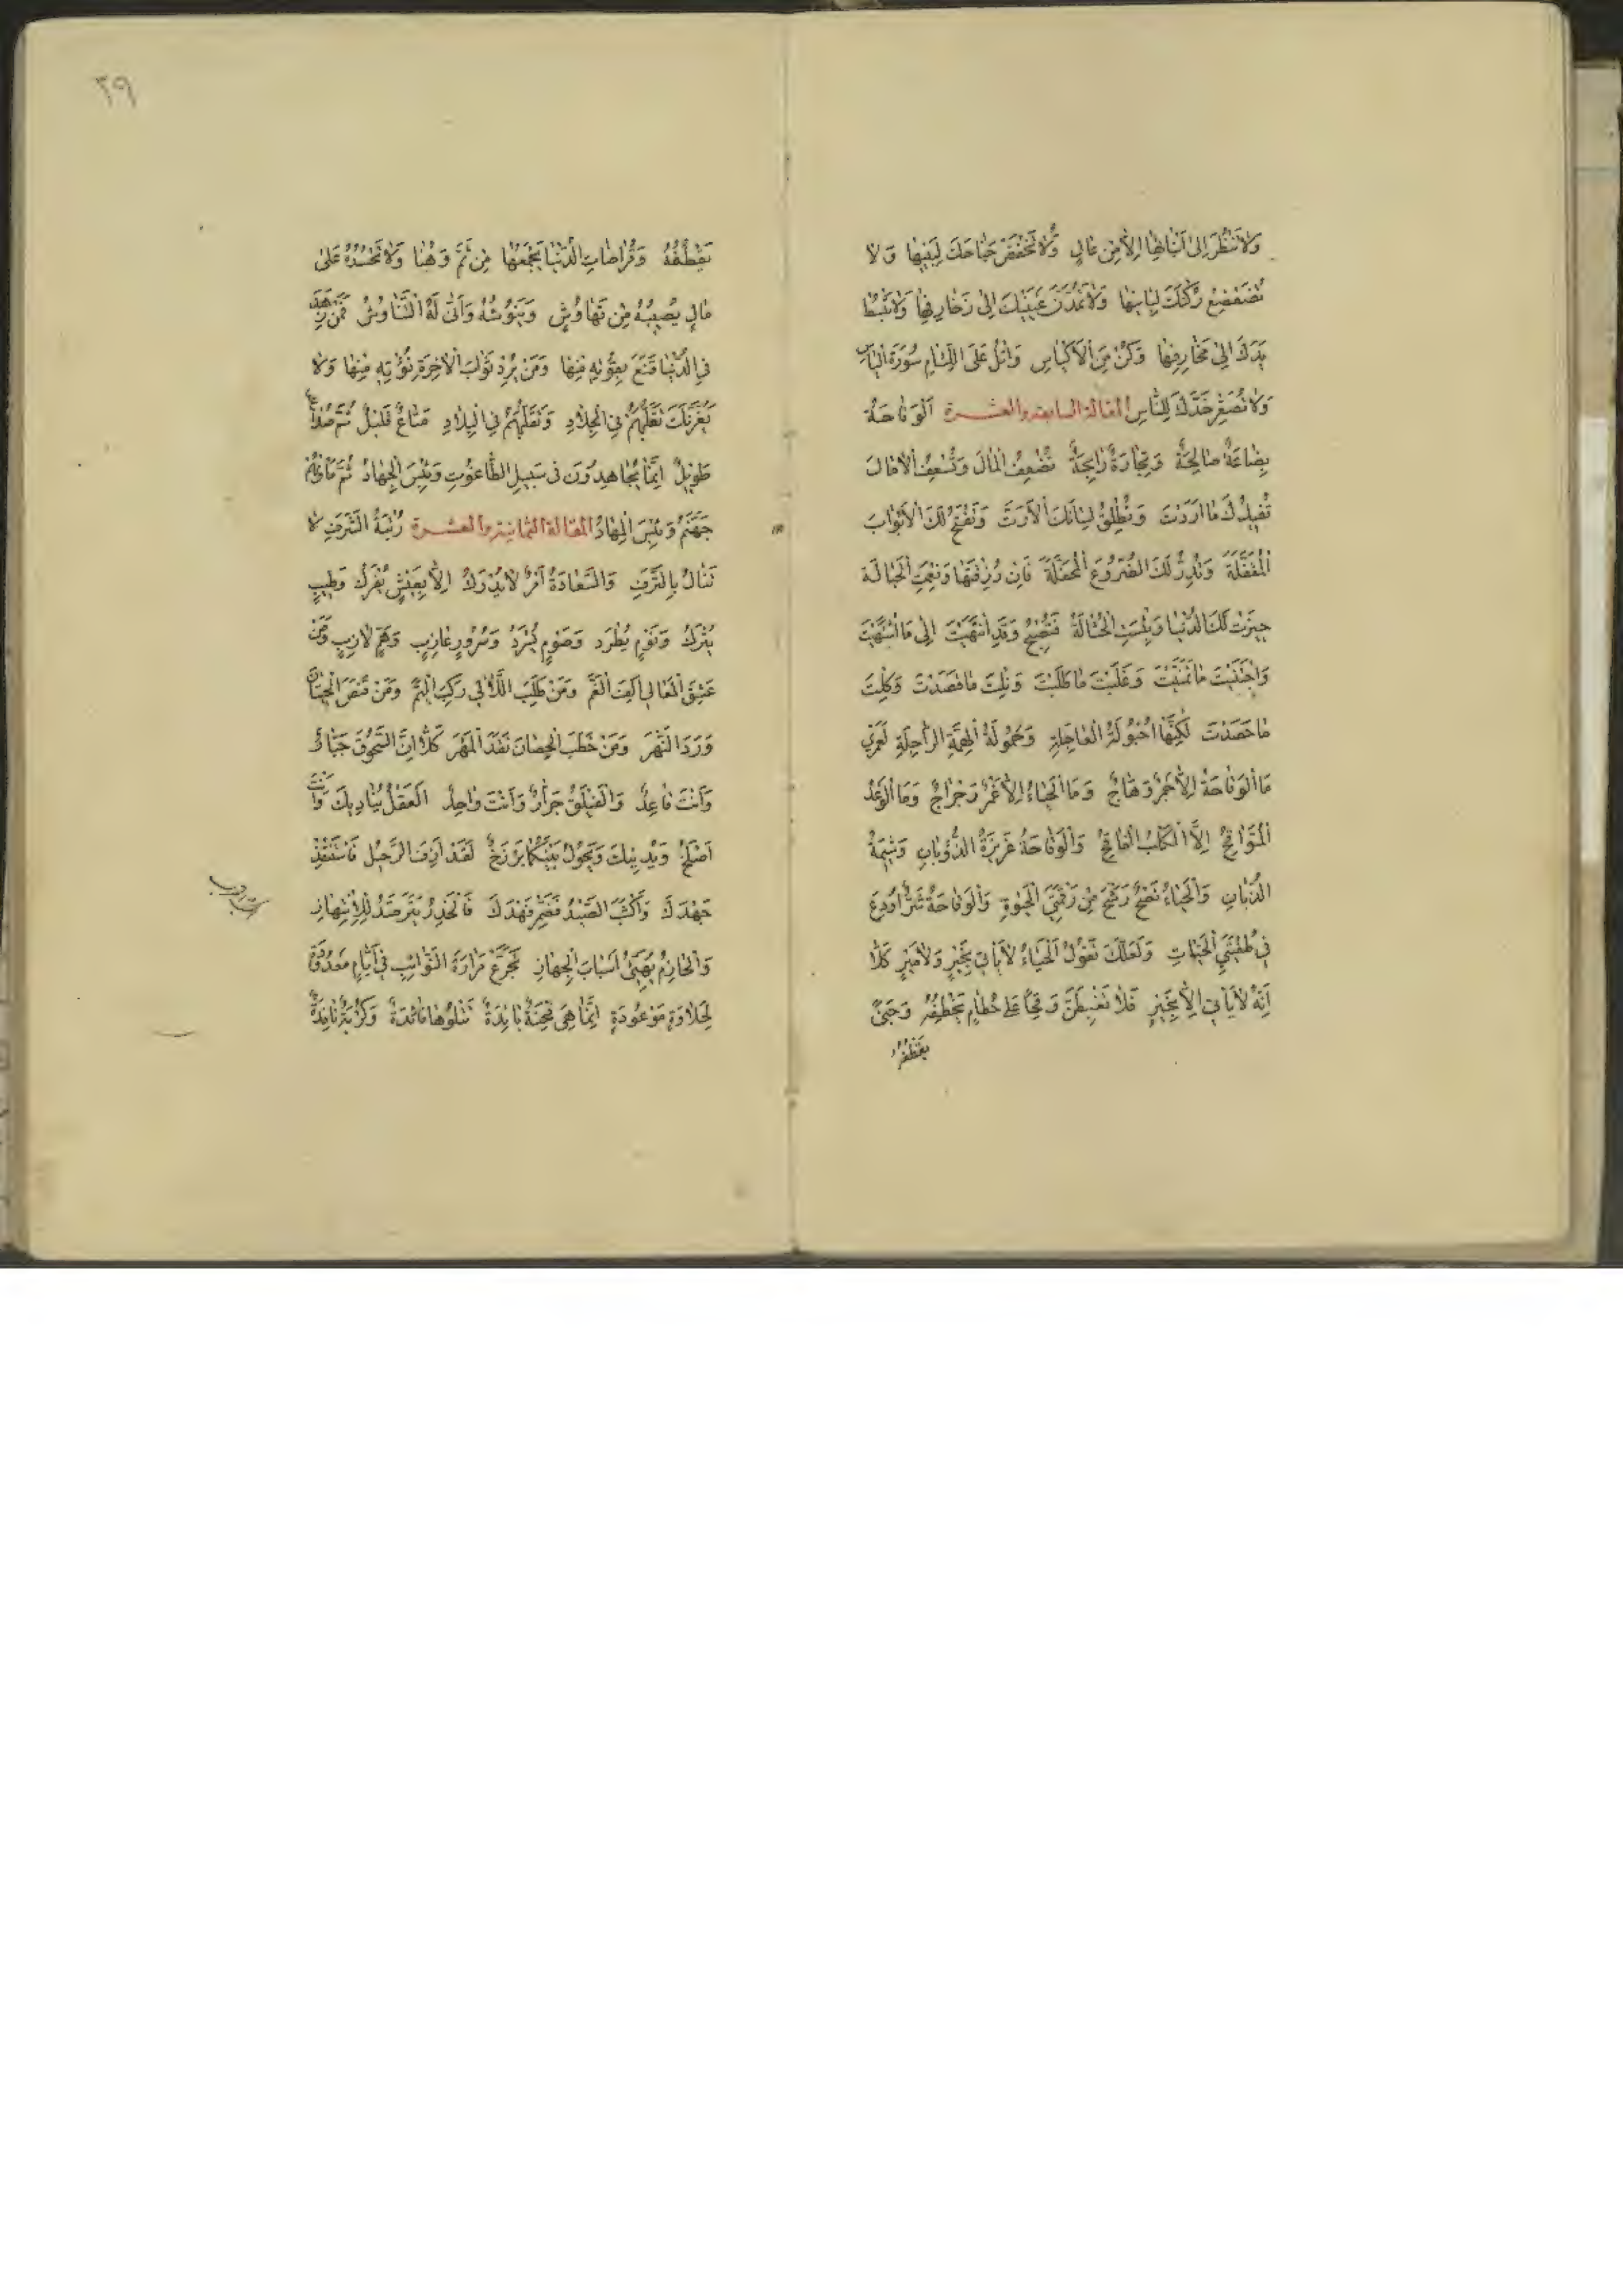 وَلَا تَنْظُرْ إِلَى لَبَّاتِهَا إِلَّا مِنْ عَالٍ وَلَا تَخْفِضْ جَنَاحَكَ لِبَنِيهَا وَلَا
تُضَعْضِعْ رُكْنَكَ لِبَانِيهَا وَلَا تَمُدَّنَّ عَيْنَيْكَ إِلَى زَخَارِفِهَا وَلَا تَبْسُطْ
يَدَكَ إِلَى مَخَارِفِهَا وَكُنْ مِنَ الْأَكْيَاسِ وَاتْلُ عَلَى اللِّئَامِ سُورَةَ الْيَأْسِ
وَلَا تُصَعِّرْ خَدَّكَ لِلنَّاسِ المقالة السابعة والعشرة اَلْوَقَاحَةُ
بِضَاعَةٌ صَالِحَةٌ وَتِجَارَةٌ رَابِحَةٌ تُضْعِفُ الْمَالَ وَتُسْعِفُ الْآمَالَ
تُفِيدُكَ مَا أَرَدْتَ وَتُطْلِقُ لِسَانَكَ الْأَرَتَّ وَتَفْتَحُ لَكَ الْأَبْوَابَ
الْمُقَفَّلَةَ وَتُدِرُّ لَكَ الضُّرُوعَ الْمُحَفَّلَةَ فَإِنْ رُزِقْتَهَا وَنِعْمَتِ الْحِبَالَة
حِيزَتْ لَكَ الدُّنْيَا وَبِئْسَتِ الْحُثَالَةُ فَتُصْبِحُ وَقَدِ انْتَهَيْتَ إِلَى مَا اشْتَهَيْتَ
وَاجْتَنَيْتَ مَا تَمَنَّيْتَ وَغَلَبْتَ مَا طَلَبْتَ وَنِلْتَ مَا قَصَدْتَ وَكِلْتَ
مَا حَصَدْتَ لَكِنَّهَا أُحْبُولَةُ الْعَاجِلَةِ وَحُمُولَةُ الْهِمَّةِ الرَّاجِلَةِ لَعَمْرِي
مَا الْوَقَاحَةُ إِلَّا جَمْرٌ وَهَّاجٌ وَمَا الْحَيَاءُ إِلَّا غَمْرٌ رَجْرَاجٌ وَمَا الْوَغْدُ
الْمُتَوَاقِحُ إِلَّا الْكَلْبُ النَّابِحُ وَالْوَقَاحَةُ غَرِيزَةُ الذُّؤْبَانِ وَشِيمَةُ
الذُّبَابِ وَالْحَيَاءُ نَضْحٌ رَشَحَ مِنْ الْحَيٰوةِ وَالْوَقَاحَةُ شَرٌّ أُودِعَ
فِي طُفْيَتَيِ الْحَيَّاتِ وَلَعَلَّكَ تَقُولُ الْحَيَاءُ لَا يَأْتِي بِخَيْرٍ وَلَا مَيْرٍ كَلَّا
إِنَّهُ لَا يَأْتِي إِلَّا بِخَيْرٍ فَلَا تَغْبِطَنَّ وَقِحًا عَلَى حُطَامٍ يَخْطِفُهُ وَجَنًى
يَقْطِفُهُ
٢٩
يَقْطِفُهُ وَقُرَاضَاتِ الدُّنْيَا يَجْمَعُهَا مِنْ ثَمَّ وَهُنَا وَلَا تَحْسُدْهُ عَلَى
مَالٍ يُصِيبُهُ مِنْ تَهَاوُشٍ وَيَنُوشُهُ وَأَنَّى لَهُ التَّنَاوُشُ فَمَنْ زَهِدَ
فِي الدُّنْيَا قَنَعَ بِقُوتِهِ مِنْهَا وَمَنْ يُرِدْ ثَوَابَ الْآخِرَةِ نُؤْتِهِ مِنْهَا وَلَا
يَغُرَّنَّكَ تَقَلُّبُهُمْ فِي الْجِلَادِ وَتَقَلُّبُهُمْ فِي الْبِلَادِ مَتَاعٌ قَلِيلٌ ثُمَّ صُدَاعٌ
طَوِيلٌ إِنَّمَا يُجَاهِدُونَ فِي سَبِيلِ الطَّاغُوتِ وَبِئْسَ الْجِهَادُ ثُمَّ مَأْوٰيهُمْ
جَهَنَّمُ وَبِئْسَ الْمِهَادُ المقالة الثمانية والعشرة رُتْبَةُ الشَّرَفِ لَا
تُنَالُ بِالتَّرَفِ وَالسَّعَادَةُ أَمْرٌ لَا يُدْرَكُ إِلَّا بِعَيْشٍ يُفْرَكُ وَطِيبٍ
يُتْرَكُ وَنَوْمٍ يُطْرَدُ وَصَوْمٍ يُسْرَدُ وَسُرُورٍ عَازِبٍ وَهَمٍّ لَازِبٍ وَمَنْ
عَشِقَ الْمَعَالِي أَلِفَ الْغَمَّ وَمَنْ طَلَبَ اللَّآلِي رَكِبَ الْيَمَّ وَمَنْ قَنَصَ الْحِيتَانَ
وَرَدَ النَّهَرَ وَمَنْ خَطَبَ الْحِصَانَ نَقَدَ الْمَهْرَ كَلَّا إِنَّ السَّحُوقَ جَبَّارٌ
وَأَنْتَ قَاعِدٌ وَالْفَيْلَقُ جَرَّارٌ وَأَنْتَ وَاحِدٌ الْعَقْلُ يُنَادِيكَ وَأَنْتَ
أَصْلَخُ وَيُدْنِيكَ وَيَحُولُ بَيْنَكُمَا بَرْزَخٌ لَقَدْ أَزِفَ الرَّحِيلُ فَاسْتَنْفِذْ
جَهْدَكَ وَأَكْثَبَ الصَّيْدُ فَضَمِّرْ فَهْدَكَ فَالْحَذِرُ يَتَرَصَّدُ لِلْاِنْتِهَازِ
وَالْحَازِمُ يُهَيِّئُ أَسْبَابَ الْجِهَازِ تَجَرَّعْ مَرَارَةَ النَّوَائِبِ فِي أَيَّامٍ مَعْدُودَةٍ
لِحَلَاوَةٍ مَوْعُودَةٍ إِنَّمَا هِيَ مِحْنَةٌ بَائِدَةٌ تَتْلُوهَا فَائِدَةٌ وَكُرْبَةٌ نَافِدَةٌ